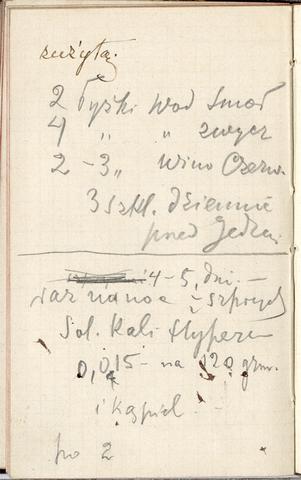 zużytą.
2 łyżki wod smoł
4 „ „ zwycz
2 - 3 „ wino Czerw.
3 szkl. dziennie
przed Jedze
4 - 5, dni. -
raz na noc
Sol. Kali Hyper
0,015 - na 120 grm.
i kąpiel . -
po 2